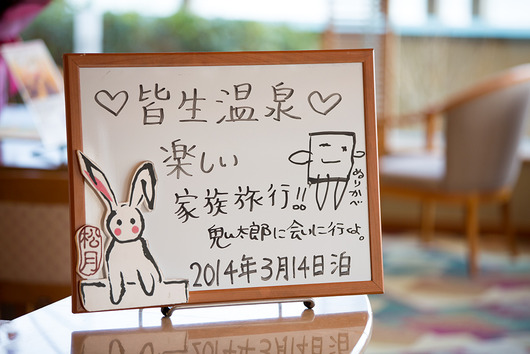 ♡皆生温泉♡
楽しい
家族旅行!!
鬼太郎に会いに行くよ。
2014年3月14日泊
ぬりかべ
松月